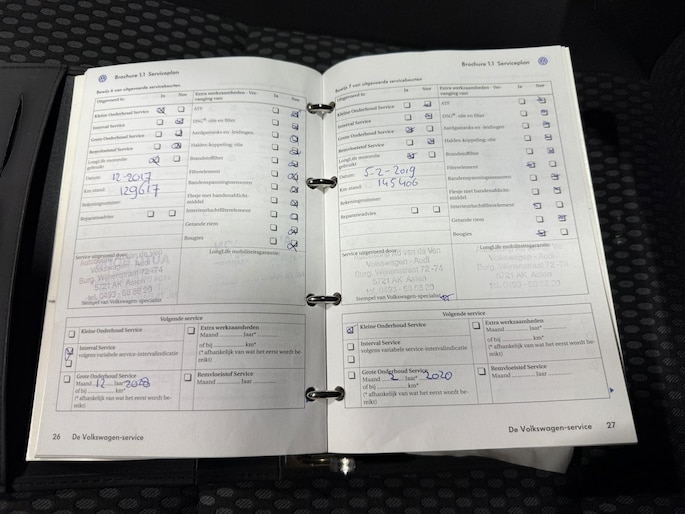 Brochure 1.1 Serviceplan
Bewijs 6 van uitgevoerde servicebeurten
Uitgevoerd is: Ja Nee
Kleine Onderhoud Service
Interval Service
Grote Onderhoud Service
Remvloeistof Service
LongLife motorolie gebruikt
Datum: 12-2017
Km-stand: 129617
Rekeningnummer:
Reparatieadvies
Extra werkzaamheden - Vervanging van: Ja Nee
ATF
DSG®-olie en filter
Aardgastanks en -leidingen
Haldex-koppeling: olie
Brandstoffilter
Filterelement
Bandenspanningssensoren
Flesje met bandenafdichtmiddel
Interieurluchtfilterelement
Getande riem
Bougies
Service uitgevoerd door:
LongLife mobiliteitsgarantie:
Volkswagen - Audi
5721 AK Asten
Stempel van Volkswagen-specialist
Volgende service
Kleine Onderhoud Service
Interval Service
volgens variabele service-intervalindicatie
Grote Onderhoud Service
Maand 12 Jaar*
of bij km*
(* afhankelijk van wat het eerst wordt bereikt)
Extra werkzaamheden
Maand Jaar*
of bij km*
(* afhankelijk van wat het eerst wordt bereikt)
Remvloeistof Service
Maand Jaar
26 De Volkswagen-service
Brochure 1.1 Serviceplan
Bewijs 7 van uitgevoerde servicebeurten
Uitgevoerd is: Ja Nee
Kleine Onderhoud Service
Interval Service
Grote Onderhoud Service
Remvloeistof Service
LongLife motorolie gebruikt
Datum: 5-2-2019
Km-stand: 145406
Rekeningnummer:
Reparatieadvies
Extra werkzaamheden - Vervanging van: Ja Nee
ATF
DSG®-olie en filter
Aardgastanks en -leidingen
Haldex-koppeling: olie
Brandstoffilter
Filterelement
Bandenspanningssensoren
Flesje met bandenafdichtmiddel
Interieurluchtfilterelement
Getande riem
Bougies
Service uitgevoerd door:
LongLife mobiliteitsgarantie:
Volkswagen - Audi
5721 AK Asten
Stempel van Volkswagen-specialist
Volgende service
Kleine Onderhoud Service
Interval Service
volgens variabele service-intervalindicatie
Grote Onderhoud Service
Maand 2 Jaar* 2020
of bij km*
(* afhankelijk van wat het eerst wordt bereikt)
Extra werkzaamheden
Maand Jaar*
of bij km*
(* afhankelijk van wat het eerst wordt bereikt)
Remvloeistof Service
Maand Jaar
De Volkswagen-service 27